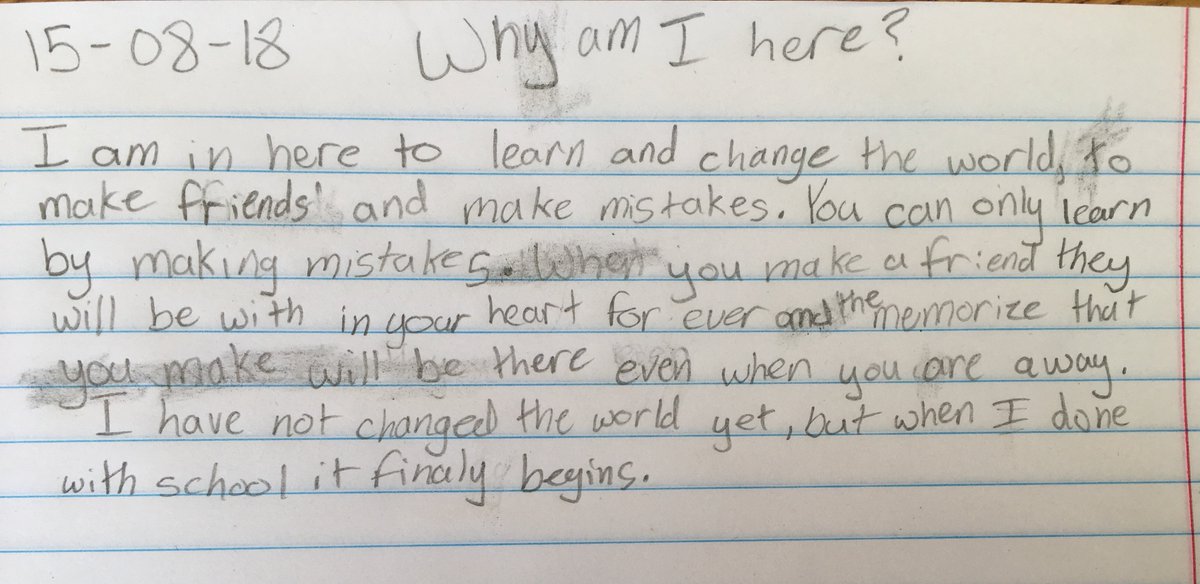 15-08-18 Why am I here?
I am in here to learn and change the world, to
make friends and make mistakes. You can only learn
by making mistakes. When you make a friend they
will be with in your heart for ever and the memorize that
you make will be there even when you are away.
I have not changed the world yet, but when I done
with school it finaly begins.